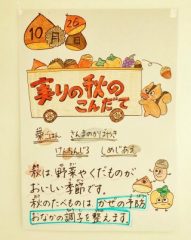 10月26日
実りの秋の
こんだて
麦ごはん さんまのかばやき
けんちんじる しめじあえ
秋は、野菜やくだものが
おいしい季節です。
秋のたべものは、かぜの予防
おなかの調子を整えます。